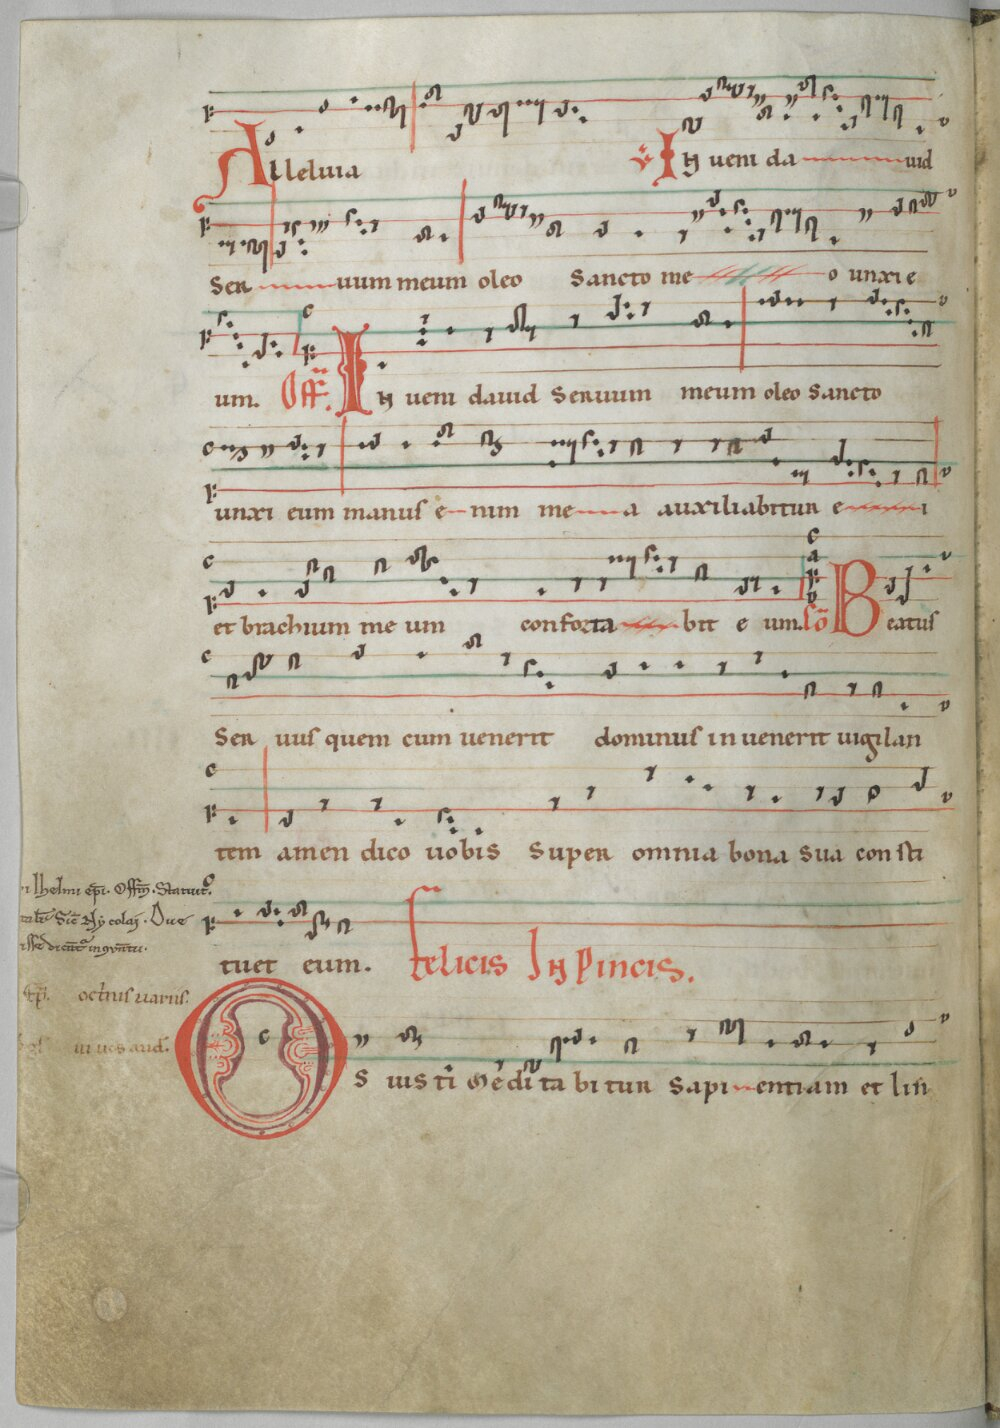 Alleluia ℣ Inueni dauid
Seruum meum oleo Sancto meo unxi e
um. Off. Inueni dauid Seruum meum oleo Sancto
unxi eum manus enim mea auxiliabitur ei
et brachium meum confortabit eum. Co Beatus
Seruus quem cum uenerit dominus inuenerit uigilan
tem amen dico uobis Super omnia bona Sua consti
tuet eum. Felicis In Pincis.
Os iusti meditabitur Sapientiam et lin
lhelmi epi. Offm. Statuit.
Nycolaj. Due
octauis uariis.